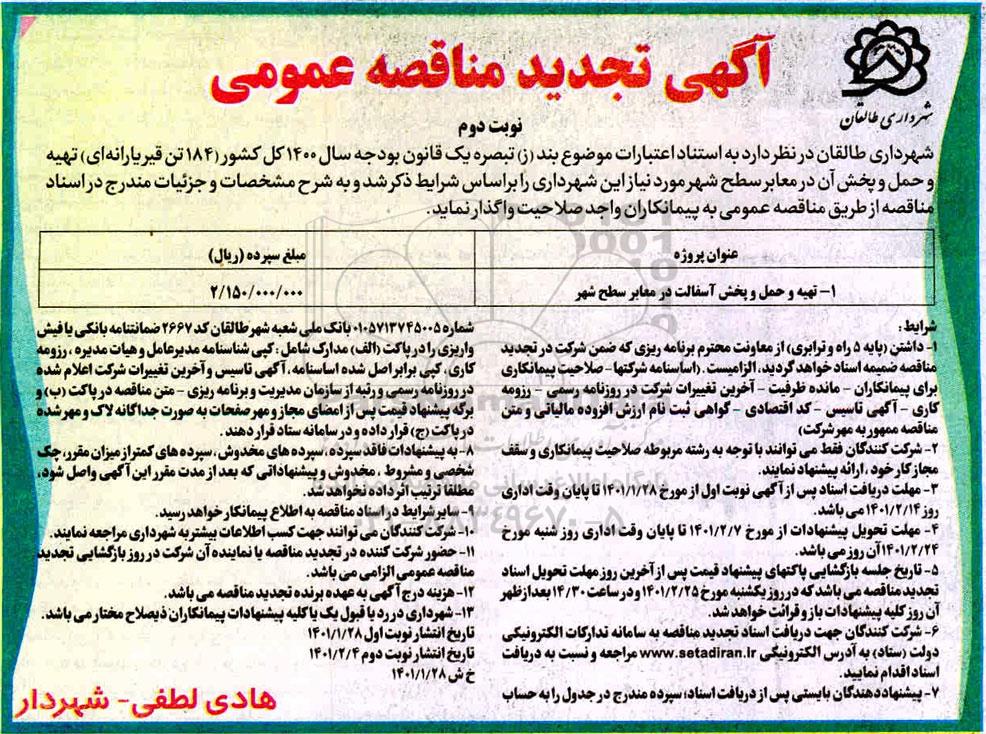 شهرداری طالقان
آگهی تجدید مناقصه عمومی
نوبت دوم
شهرداری طالقان در نظر دارد به استناد اعتبارات موضوع بند (ز) تبصره یک قانون بودجه سال ۱۴۰۰ کل کشور (۱۸۴ تن قیر یارانه‌ای) تهیه
و حمل و پخش آن در معابر سطح شهر مورد نیاز این شهرداری را براساس شرایط ذکر شد و به شرح مشخصات و جزئیات مندرج در اسناد
مناقصه از طریق مناقصه عمومی به پیمانکاران واجد صلاحیت واگذار نماید.
عنوان پروژه
مبلغ سپرده (ریال)
۱- تهیه و حمل و پخش آسفالت در معابر سطح شهر
۲/۱۵۰/۰۰۰/۰۰۰
شرایط :
۱- داشتن (پایه ۵ راه و ترابری) از معاونت محترم برنامه ریزی که ضمن شرکت در تجدید
مناقصه ضمیمه اسناد خواهد گردید، الزامیست. (اساسنامه شرکتها - صلاحیت پیمانکاری
برای پیمانکاران - مانده ظرفیت - آخرین تغییرات شرکت در روزنامه رسمی - رزومه
کاری - آگهی تاسیس - کد اقتصادی - گواهی ثبت نام ارزش افزوده مالیاتی و متن
مناقصه ممهور به مهر شرکت)
۲- شرکت کنندگان فقط می توانند با توجه به رشته مربوطه صلاحیت پیمانکاری و سقف
مجاز کار خود ، ارائه پیشنهاد نمایند.
۳- مهلت دریافت اسناد پس از آگهی نوبت اول از مورخ ۱۴۰۱/۱/۲۸ تا پایان وقت اداری
روز ۱۴۰۱/۲/۱۴ می باشد.
۴- مهلت تحویل پیشنهادات از مورخ ۱۴۰۱/۲/۷ تا پایان وقت اداری روز شنبه مورخ
۱۴۰۱/۲/۲۴ آن روز می باشد.
۵- تاریخ جلسه بازگشایی پاکتهای پیشنهاد قیمت پس از آخرین روز مهلت تحویل اسناد
تجدید مناقصه می باشد که در روز یکشنبه مورخ ۱۴۰۱/۲/۲۵ و در ساعت ۱۴/۳۰ بعدازظهر
آن روز کلیه پیشنهادات باز و قرائت خواهد شد.
۶- شرکت کنندگان جهت دریافت اسناد تجدید مناقصه به سامانه تدارکات الکترونیکی
دولت (ستاد) به آدرس الکترونیکی www.setadiran.ir مراجعه و نسبت به دریافت
اسناد اقدام نمایید.
۷- پیشنهاد دهندگان بایستی پس از دریافت اسناد، سپرده مندرج در جدول را به حساب
شماره ۰۱۰۵۷۱۳۷۴۵۰۰۵ بانک ملی شعبه شهر طالقان کد ۲۶۶۷ ضمانتنامه بانکی یا فیش
واریزی را در پاکت (الف) مدارک شامل : کپی شناسنامه مدیرعامل و هیات مدیره ، رزومه
کاری ، کپی برابر اصل شده اساسنامه ، آگهی تاسیس و آخرین تغییرات شرکت اعلام شده
در روزنامه رسمی و رتبه از سازمان مدیریت و برنامه ریزی - متن مناقصه در پاکت (ب) و
برگه پیشنهاد قیمت پس از امضای مجاز و مهر صفحات به صورت جداگانه لاک و مهر شده
در پاکت (ج) قرار داده و در سامانه ستاد قرار دهند.
۸- به پیشنهادات فاقد سپرده ، سپرده های مخدوش ، سپرده های کمتر از میزان مقرر، چک
شخصی و مشروط ، مخدوش و پیشنهاداتی که بعد از مدت مقرر این آگهی واصل شود،
مطلقا ترتیب اثر داده نخواهد شد.
۹- سایر شرایط در اسناد مناقصه به اطلاع پیمانکار خواهد رسید.
۱۰- شرکت کنندگان می توانند جهت کسب اطلاعات بیشتر به شهرداری مراجعه نمایند.
۱۱- حضور شرکت کننده در تجدید مناقصه یا نماینده آن شرکت در روز بازگشایی تجدید
مناقصه عمومی الزامی می باشد.
۱۲- هزینه درج آگهی به عهده برنده تجدید مناقصه می باشد.
۱۳- شهرداری در رد یا قبول یک یا کلیه پیشنهادات پیمانکاران ذیصلاح مختار می باشد.
تاریخ انتشار نوبت اول ۱۴۰۱/۱/۲۸
تاریخ انتشار نوبت دوم ۱۴۰۱/۲/۴
خ ش ۱۴۰۱/۱/۲۸
هادی لطفی - شهردار